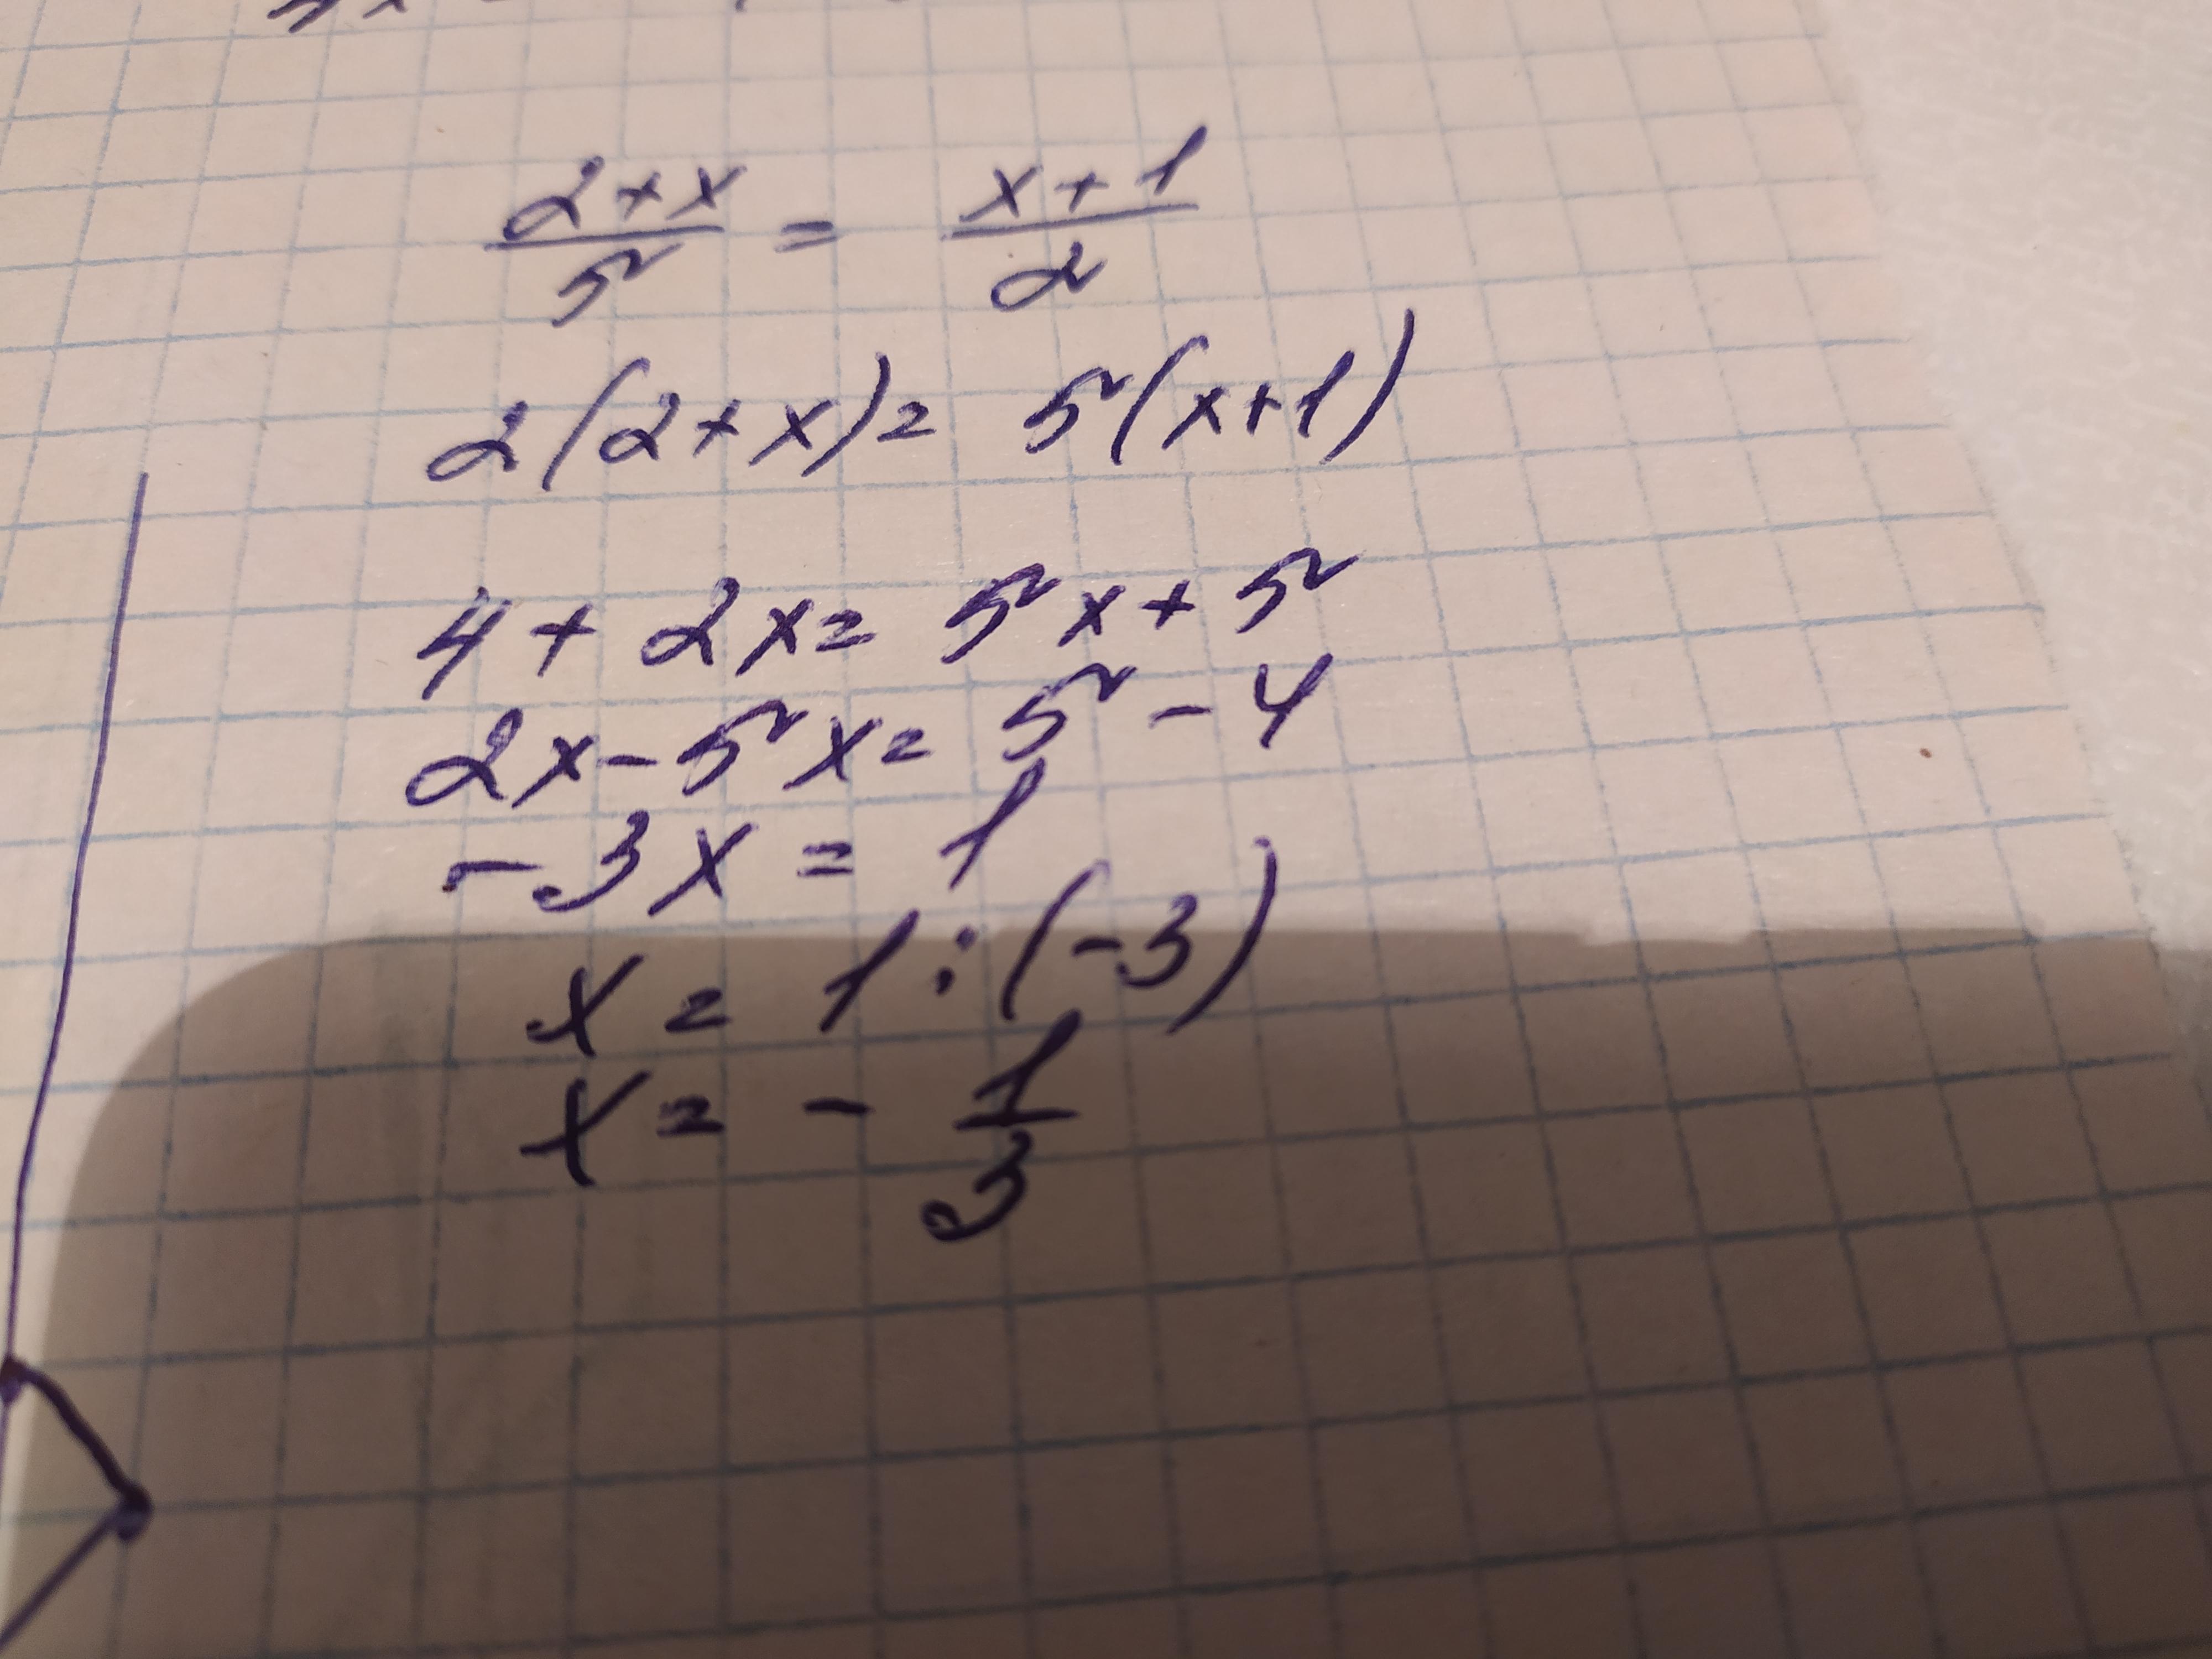 2+x/5 = x+1/2
2(2+x)= 5(x+1)
4+2x=5x+5
2x-5x=5-4
-3x=1
x=1:(-3)
x=-1/3